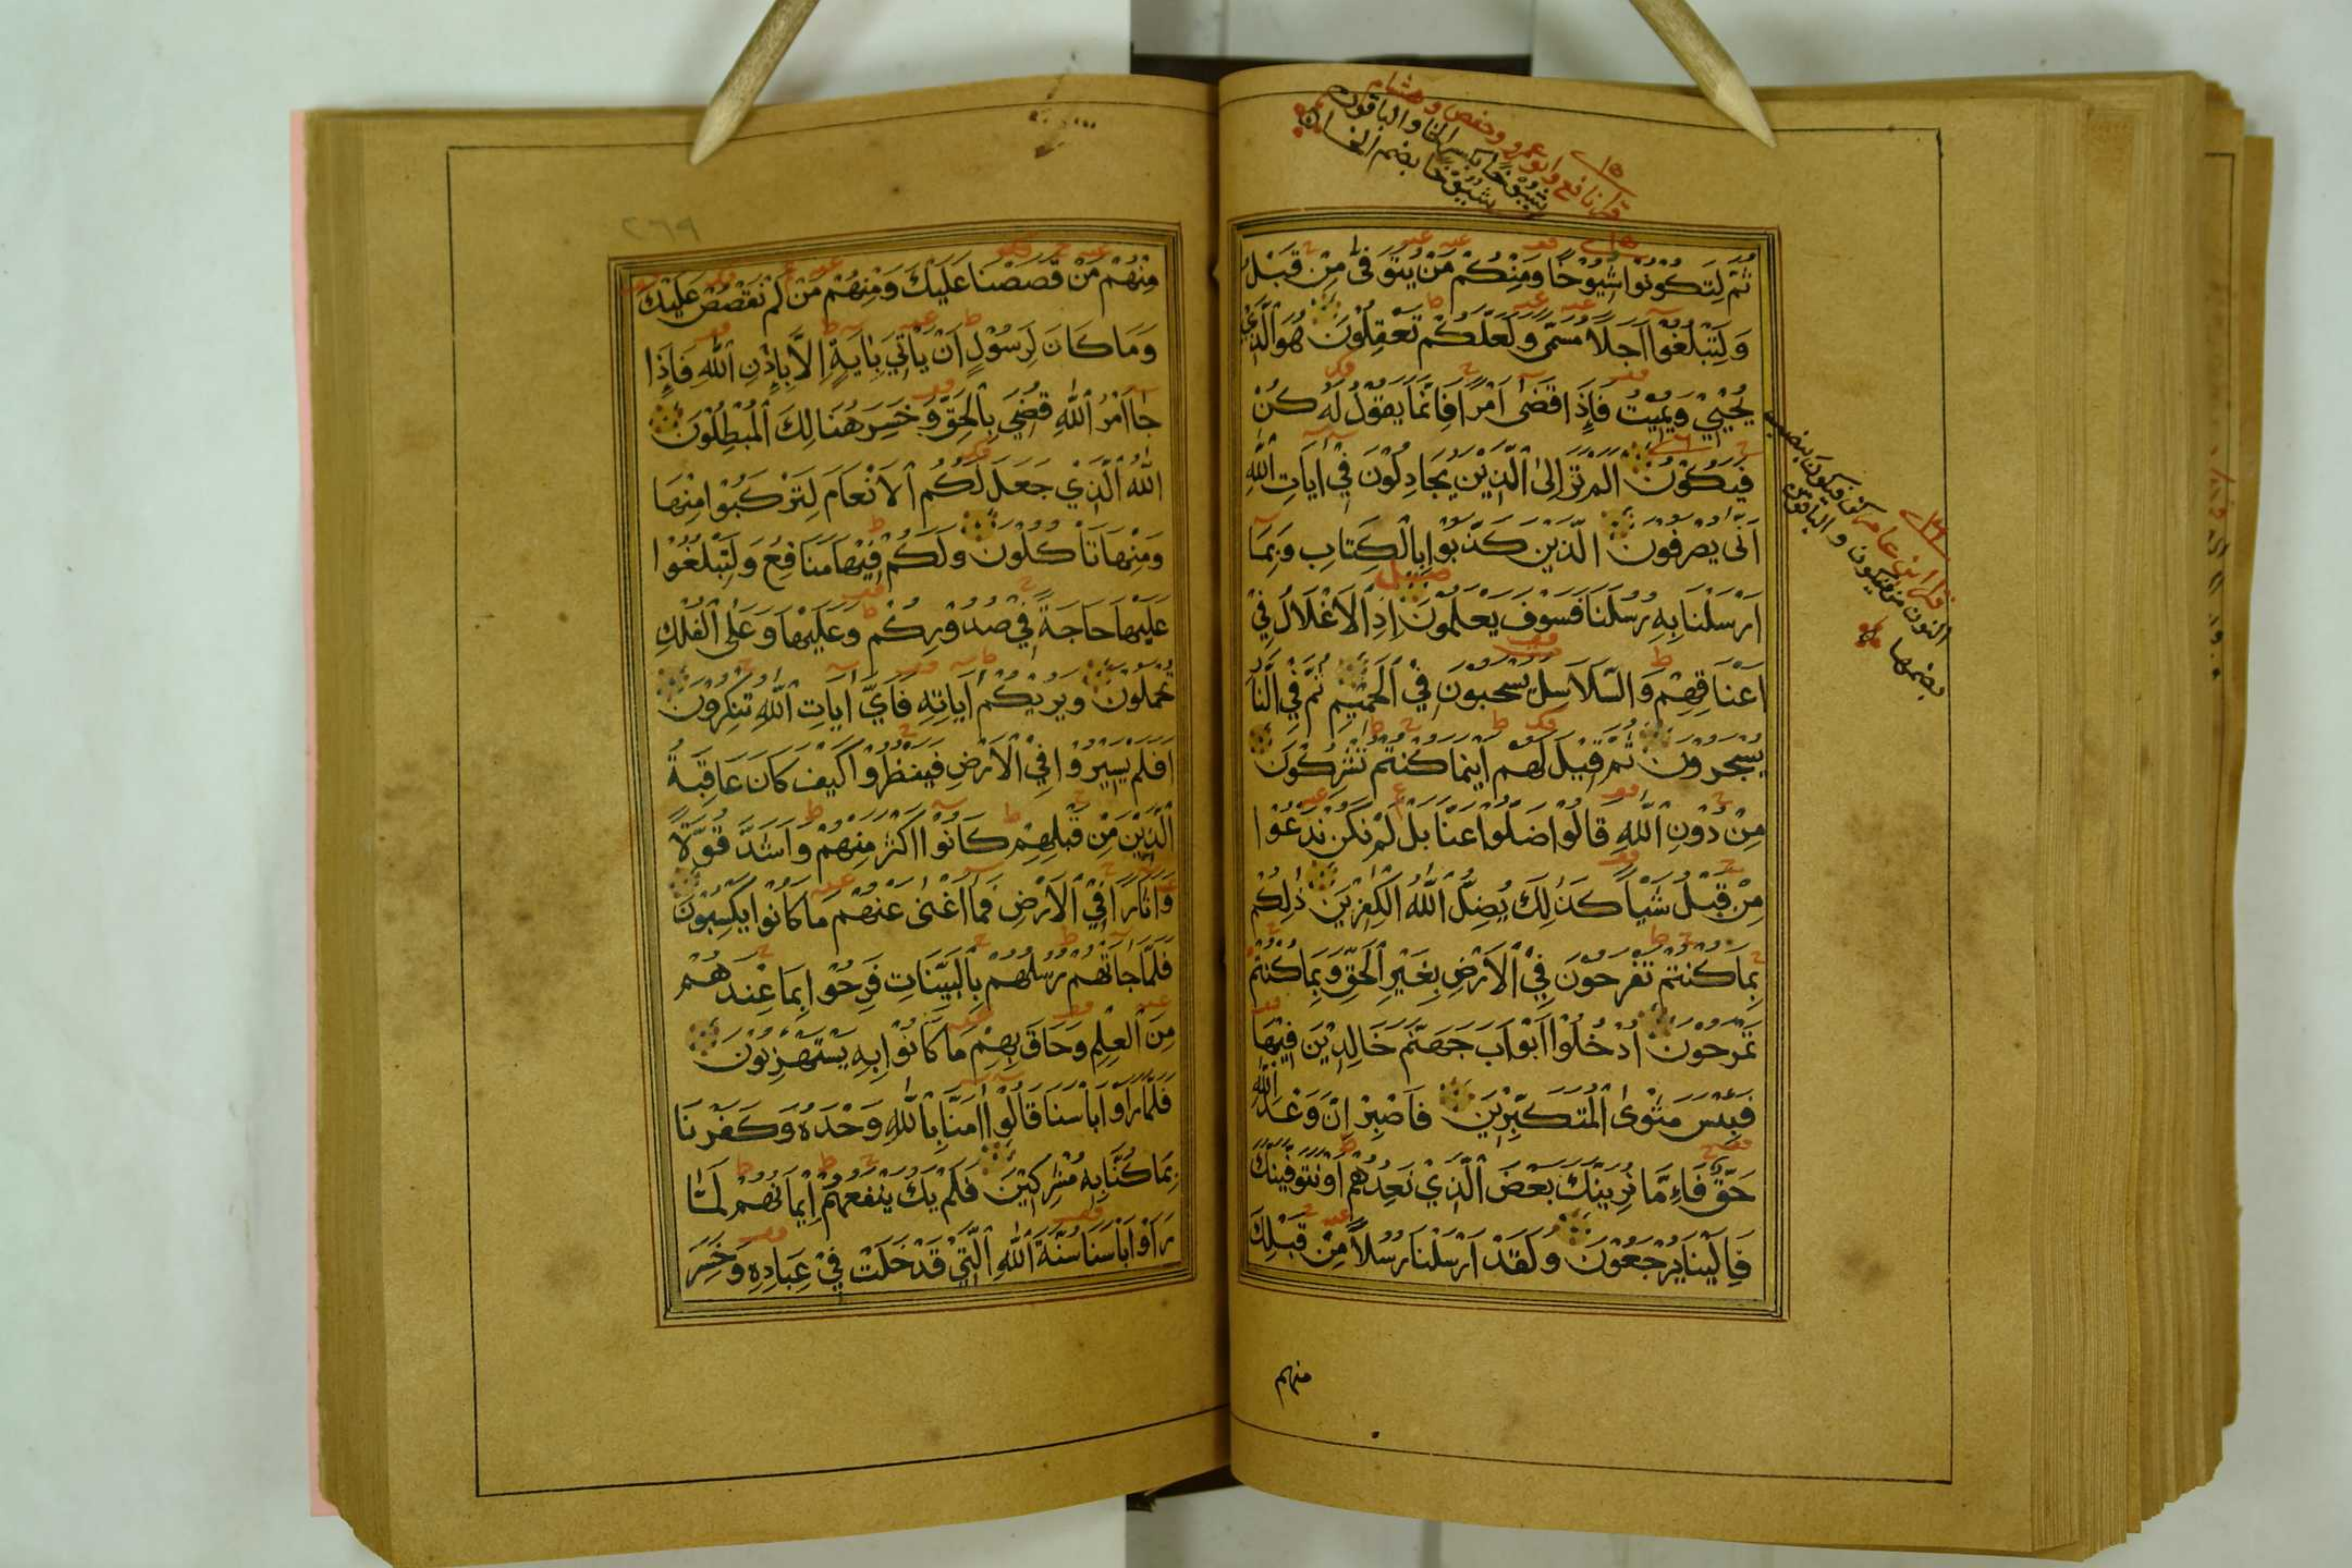 قرا نافع وابو عمرو وحفص وهشام
شُيُوْخًا بكسر الخا والباقون
شُيُوْخًا بضم الخا
ثُمَّ لِتَكُوْنُوْا شُيُوْخًا وَمِنْكُمْ مَنْ يُتَوَفّٰى مِنْ قَبْلُ
وَلِتَبْلُغُوْا اَجَلًا مُسَمًّى وَلَعَلَّكُمْ تَعْقِلُوْنَ هُوَ الَّذِيْ
يُحْيِيْ وَيُمِيْتُ فَاِذَا قَضٰى اَمْرًا فَاِنَّمَا يَقُوْلُ لَهُ كُنْ
فَيَكُوْنُ اَلَمْ تَرَ اِلَى الَّذِيْنَ يُجَادِلُوْنَ فِيْ اٰيَاتِ اللّٰهِ
اَنّٰى يُصْرَفُوْنَ الَّذِيْنَ كَذَّبُوْا بِالْكِتَابِ وَبِمَا
اَرْسَلْنَا بِهِ رُسُلَنَا فَسَوْفَ يَعْلَمُوْنَ اِذِ الْاَغْلَالُ فِيْ
اَعْنَاقِهِمْ وَالسَّلَاسِلُ يُسْحَبُوْنَ فِي الْحَمِيْمِ ثُمَّ فِي النَّارِ
يُسْجَرُوْنَ ثُمَّ قِيْلَ لَهُمْ اَيْنَمَا كُنْتُمْ تُشْرِكُوْنَ
مِنْ دُوْنِ اللّٰهِ قَالُوْا ضَلُّوْا عَنَّا بَلْ لَمْ نَكُنْ نَدْعُوْا
مِنْ قَبْلُ شَيْاً كَذٰلِكَ يُضِلُّ اللّٰهُ الْكٰفِرِيْنَ ذٰلِكُمْ
بِمَا كُنْتُمْ تَفْرَحُوْنَ فِي الْاَرْضِ بِغَيْرِ الْحَقِّ وَبِمَا كُنْتُمْ
تَمْرَحُوْنَ اُدْخُلُوْا اَبْوَابَ جَهَنَّمَ خَالِدِيْنَ فِيْهَا
فَبِئْسَ مَثْوَى الْمُتَكَبِّرِيْنَ فَاصْبِرْ اِنَّ وَعْدَ اللّٰهِ
حَقٌّ فَاِمَّا نُرِيَنَّكَ بَعْضَ الَّذِيْ نَعِدُهُمْ اَوْ نَتَوَفَّيَنَّكَ
فَاِلَيْنَا يُرْجَعُوْنَ وَلَقَدْ اَرْسَلْنَا رُسُلًا مِنْ قَبْلِكَ
قرا ابن عامر كن فيكون بنصب
النون من فيكون والباقون
بضمها
منهم
٢٦٩
مِنْهُمْ مَنْ قَصَصْنَا عَلَيْكَ وَمِنْهُمْ مَنْ لَمْ نَقْصُصْ عَلَيْكَ
وَمَا كَانَ لِرَسُوْلٍ اَنْ يَاْتِيَ بِاٰيَةٍ اِلَّا بِاِذْنِ اللّٰهِ فَاِذَا
جَا اَمْرُ اللّٰهِ قُضِيَ بِالْحَقِّ وَخَسِرَ هُنَالِكَ الْمُبْطِلُوْنَ
اللّٰهُ الَّذِيْ جَعَلَ لَكُمُ الْاَنْعَامَ لِتَرْكَبُوْا مِنْهَا
وَمِنْهَا تَاْكُلُوْنَ وَلَكُمْ فِيْهَا مَنَافِعُ وَلِتَبْلُغُوْا
عَلَيْهَا حَاجَةً فِيْ صُدُوْرِكُمْ وَعَلَيْهَا وَعَلَى الْفُلْكِ
تُحْمَلُوْنَ وَيُرِيْكُمْ اٰيَاتِهِ فَاَيَّ اٰيَاتِ اللّٰهِ تُنْكِرُوْنَ
اَفَلَمْ يَسِيْرُوْا فِي الْاَرْضِ فَيَنْظُرُوْا كَيْفَ كَانَ عَاقِبَةُ
الَّذِيْنَ مِنْ قَبْلِهِمْ كَانُوْا اَكْثَرَ مِنْهُمْ وَاَشَدَّ قُوَّةً
وَاٰثَارًا فِي الْاَرْضِ فَمَا اَغْنٰى عَنْهُمْ مَا كَانُوْا يَكْسِبُوْنَ
فَلَمَّا جَاتْهُمْ رُسُلُهُمْ بِالْبَيِّنَاتِ فَرِحُوْا بِمَا عِنْدَهُمْ
مِنَ الْعِلْمِ وَحَاقَ بِهِمْ مَا كَانُوْا بِهِ يَسْتَهْزِئُوْنَ
فَلَمَّا رَاَوْا بَاْسَنَا قَالُوْا اٰمَنَّا بِاللّٰهِ وَحْدَهُ وَكَفَرْنَا
بِمَا كُنَّا بِهِ مُشْرِكِيْنَ فَلَمْ يَكُ يَنْفَعُهُمْ اِيْمَانُهُمْ لَمَّا
رَاَوْا بَاْسَنَا سُنَّةَ اللّٰهِ الَّتِيْ قَدْ خَلَتْ فِيْ عِبَادِهِ وَخَسِرَ